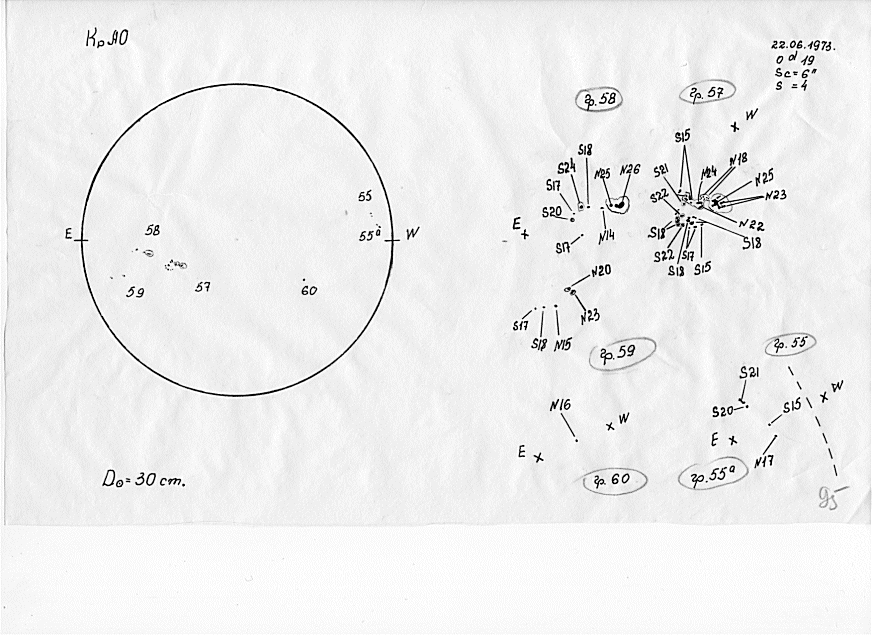 КрАО
22.06.1973.
0 ᵒˡ 19
Sc = 6"
S = 4
гр. 58
гр. 57
W
S15
S18
S24
N25
N26
S21
N24
N18
N25
S17
S22
N23
S20
E
N22
S18
S18
N14
S17
S22
S17
S18
S15
55
E
W
58
55ᵃ
59
57
60
N20
N23
S17
S18
N15
гр. 59
гр. 55
S21
N16
W
S20
S15
W
E
E
N17
гр. 60
гр. 55ᵃ
D⊙ = 30 cm.